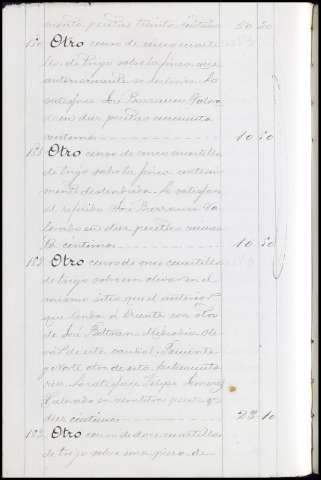 pesetas treinta céntimos 50 30
150 Otro censo de cinco cuarti
llos de trigo sobre la finca que
anteriormente se deslinda. Lo
satisface José
en diez pesetas cincuenta
céntimos 10 50
151 Otro censo de cinco cuartillos
de trigo sobre la finca anterior
mente deslindada. Lo satisface
el referido José
en diez pesetas cincuen
ta céntimos 10 50
152 Otro censo de once cuartillos
de trigo sobre un olivar en el
mismo sitio que el anterior
que linda á Oriente con otro
de José Beltran, Mediodia
de este caudal, Poniente
y Norte otro de esta testamenta
ria. Lo satisface Felipe
en veintitres pesetas
diez céntimos 23 10
153 Otro censo de doce cuartillos
de trigo sobre una pieza de